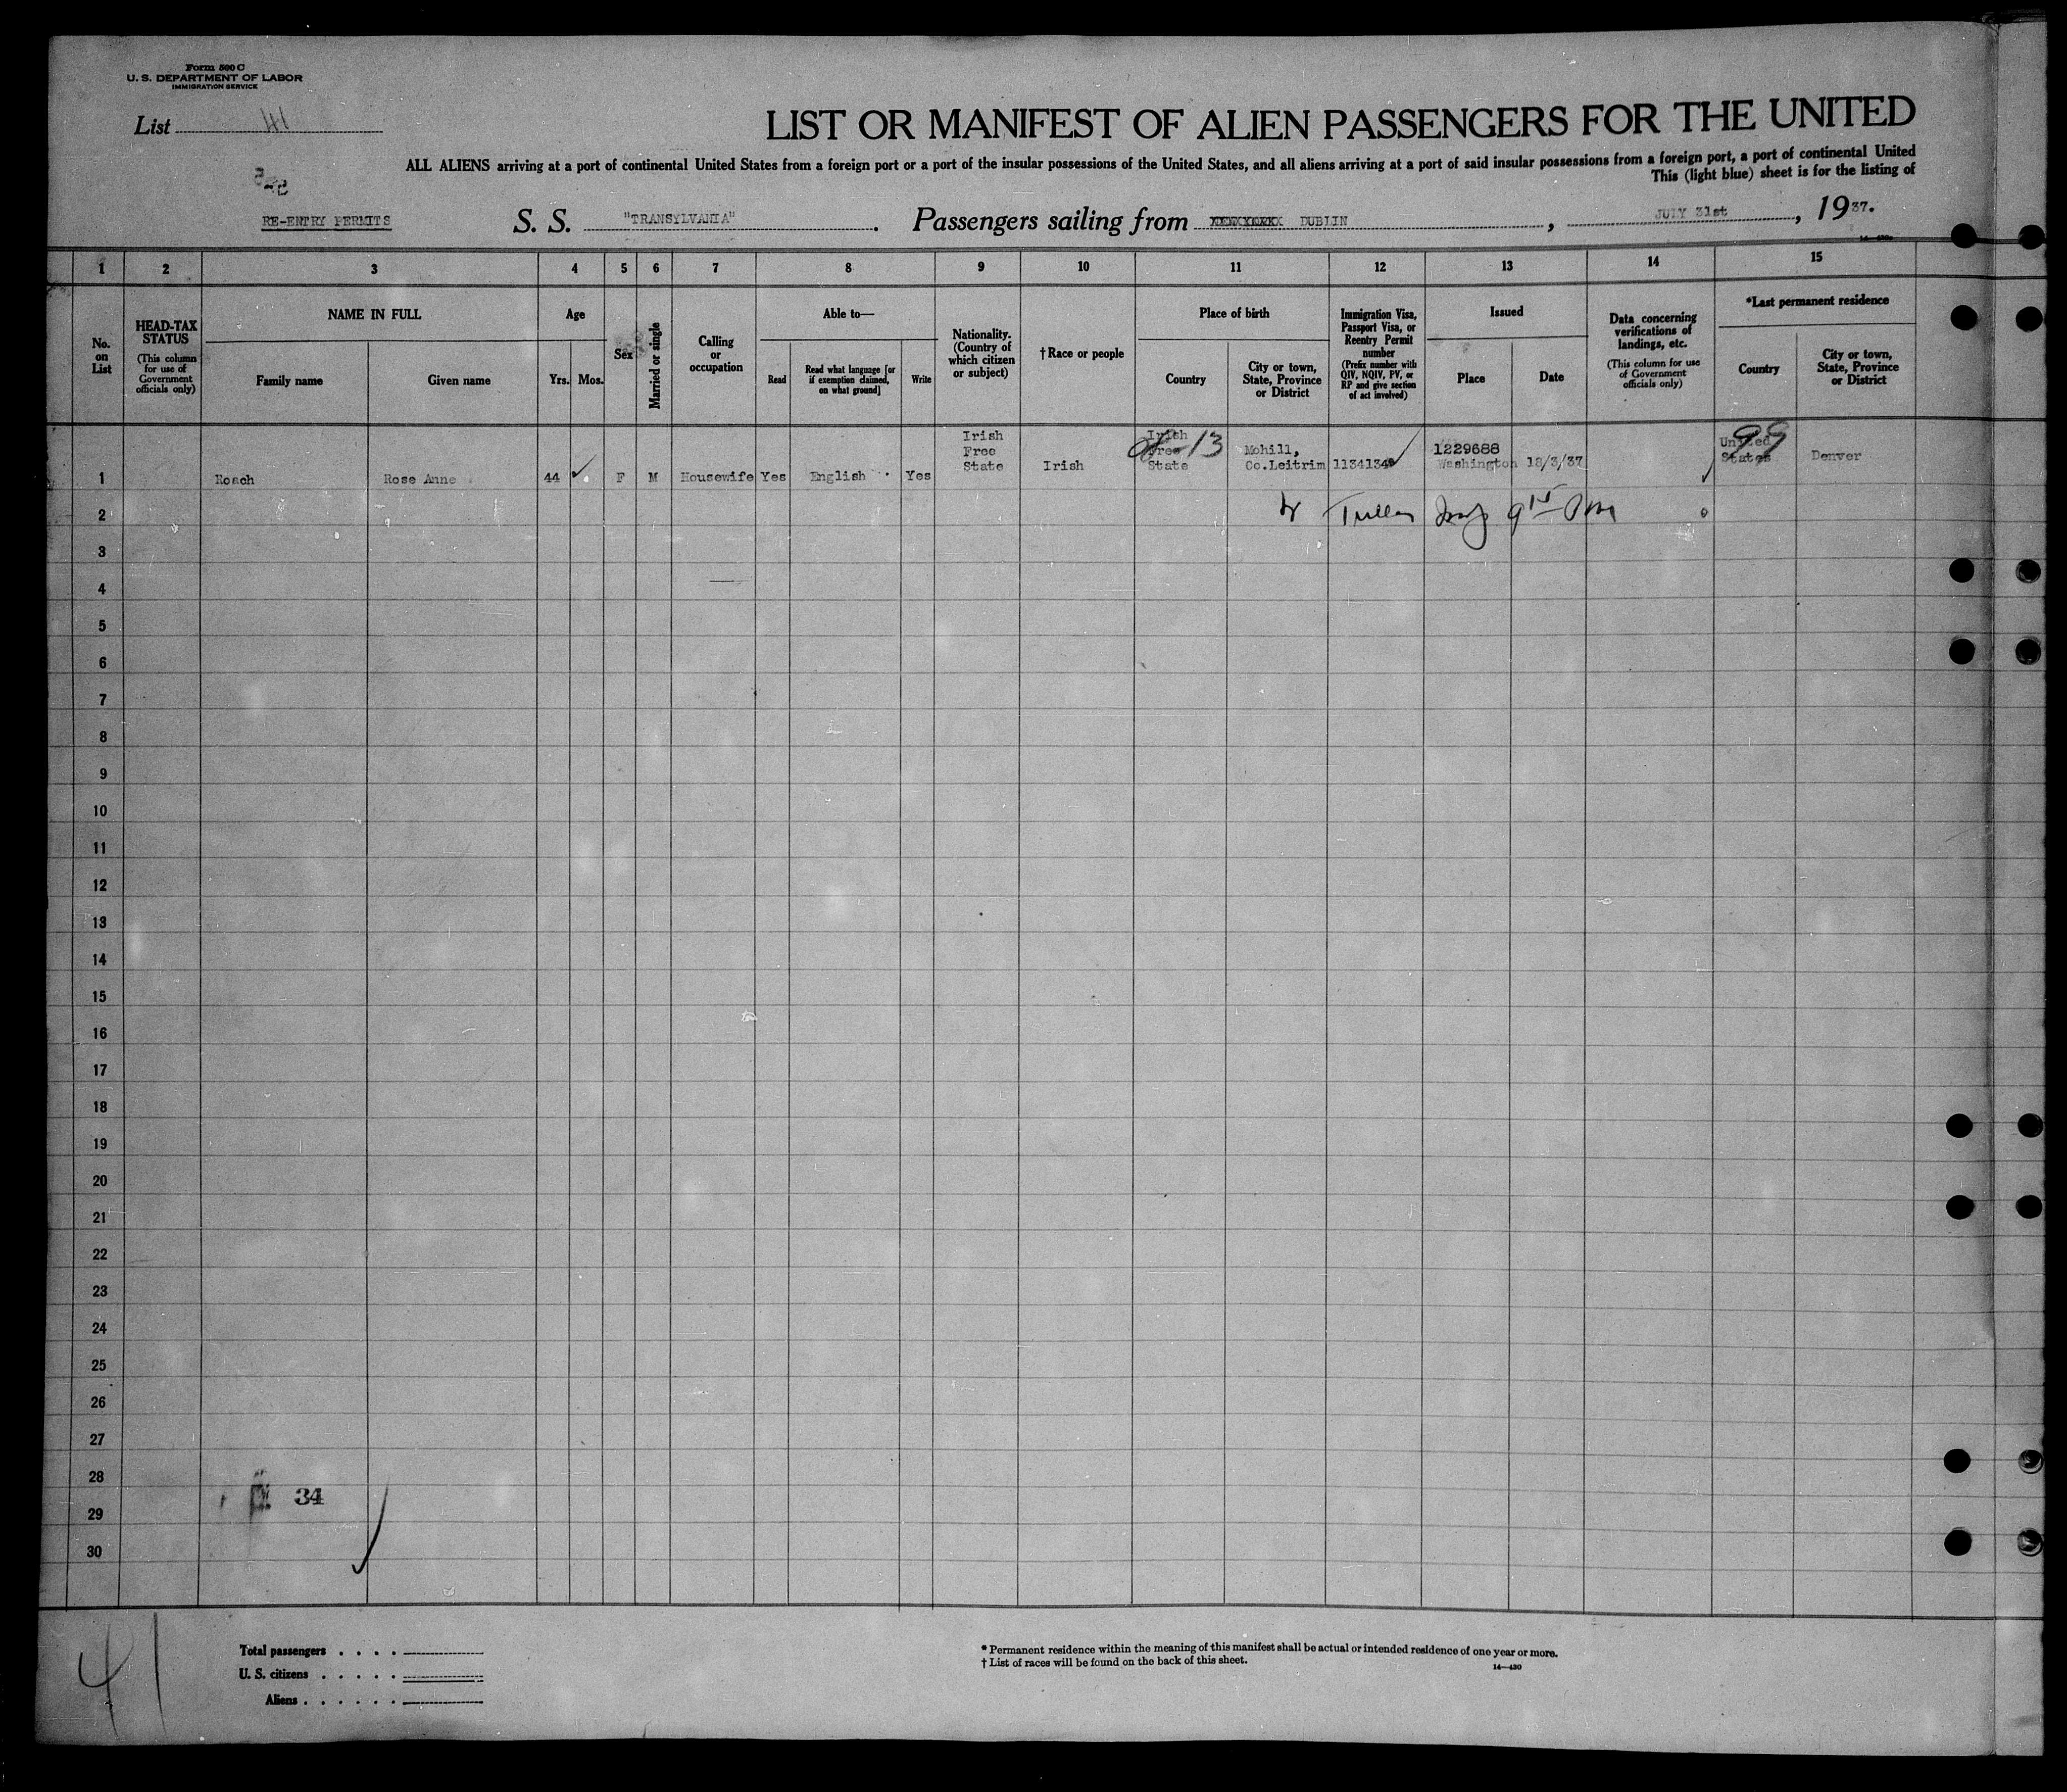 Form 500 C
U. S. DEPARTMENT OF LABOR
IMMIGRATION SERVICE
List 41
LIST OR MANIFEST OF ALIEN PASSENGERS FOR THE UNITED
ALL ALIENS arriving at a port of continental United States from a foreign port or a port of the insular possessions of the United States, and all aliens arriving at a port of said insular possessions from a foreign port, a port of continental United
This (light blue) sheet is for the listing of
RE-ENTRY PERMITS S. S. "TRANSYLVANIA". Passengers sailing from DUBLIN, JULY 31st, 1937.
14—430
1 2 3 4 5 6 7 8 9 10 11 12 13 14 15
No. on List
HEAD-TAX STATUS
(This column for use of Government officials only)
NAME IN FULL
Family name
Given name
Age
Yrs.
Mos.
Sex
Married or single
Calling or occupation
Able to—
Read
Read what language [or if exemption claimed, on what ground]
Write
Nationality. (Country of which citizen or subject)
†Race or people
Place of birth
Country
City or town, State, Province or District
Immigration Visa, Passport Visa, or Reentry Permit number
(Prefix number with QIV, NQIV, PV, or RP and give section of act involved)
Issued
Place
Date
Data concerning verifications of landings, etc.
(This column for use of Government officials only)
*Last permanent residence
Country
City or town, State, Province or District
1 Roach Rose Anne 44 F M Housewife Yes English Yes Irish Free State Irish Irish Free State Mohill, Co.Leitrim 1134134 1229688 Washington 18/3/37 United States Denver
13
99
2
3
4
5
6
7
8
9
10
11
12
13
14
15
16
17
18
19
20
21
22
23
24
25
26
27
28
34
29
30
41
Total passengers . . . .
U. S. citizens . . . . .
Aliens . . . . . .
* Permanent residence within the meaning of this manifest shall be actual or intended residence of one year or more.
† List of races will be found on the back of this sheet.
14—430